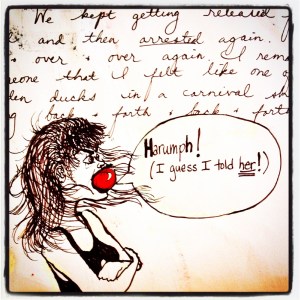 We kept getting released
and then arrested again.
over & over again. I
that I felt like one
ducks in a carnival
back & forth & back & forth
Harumph!
(I guess I told her!)